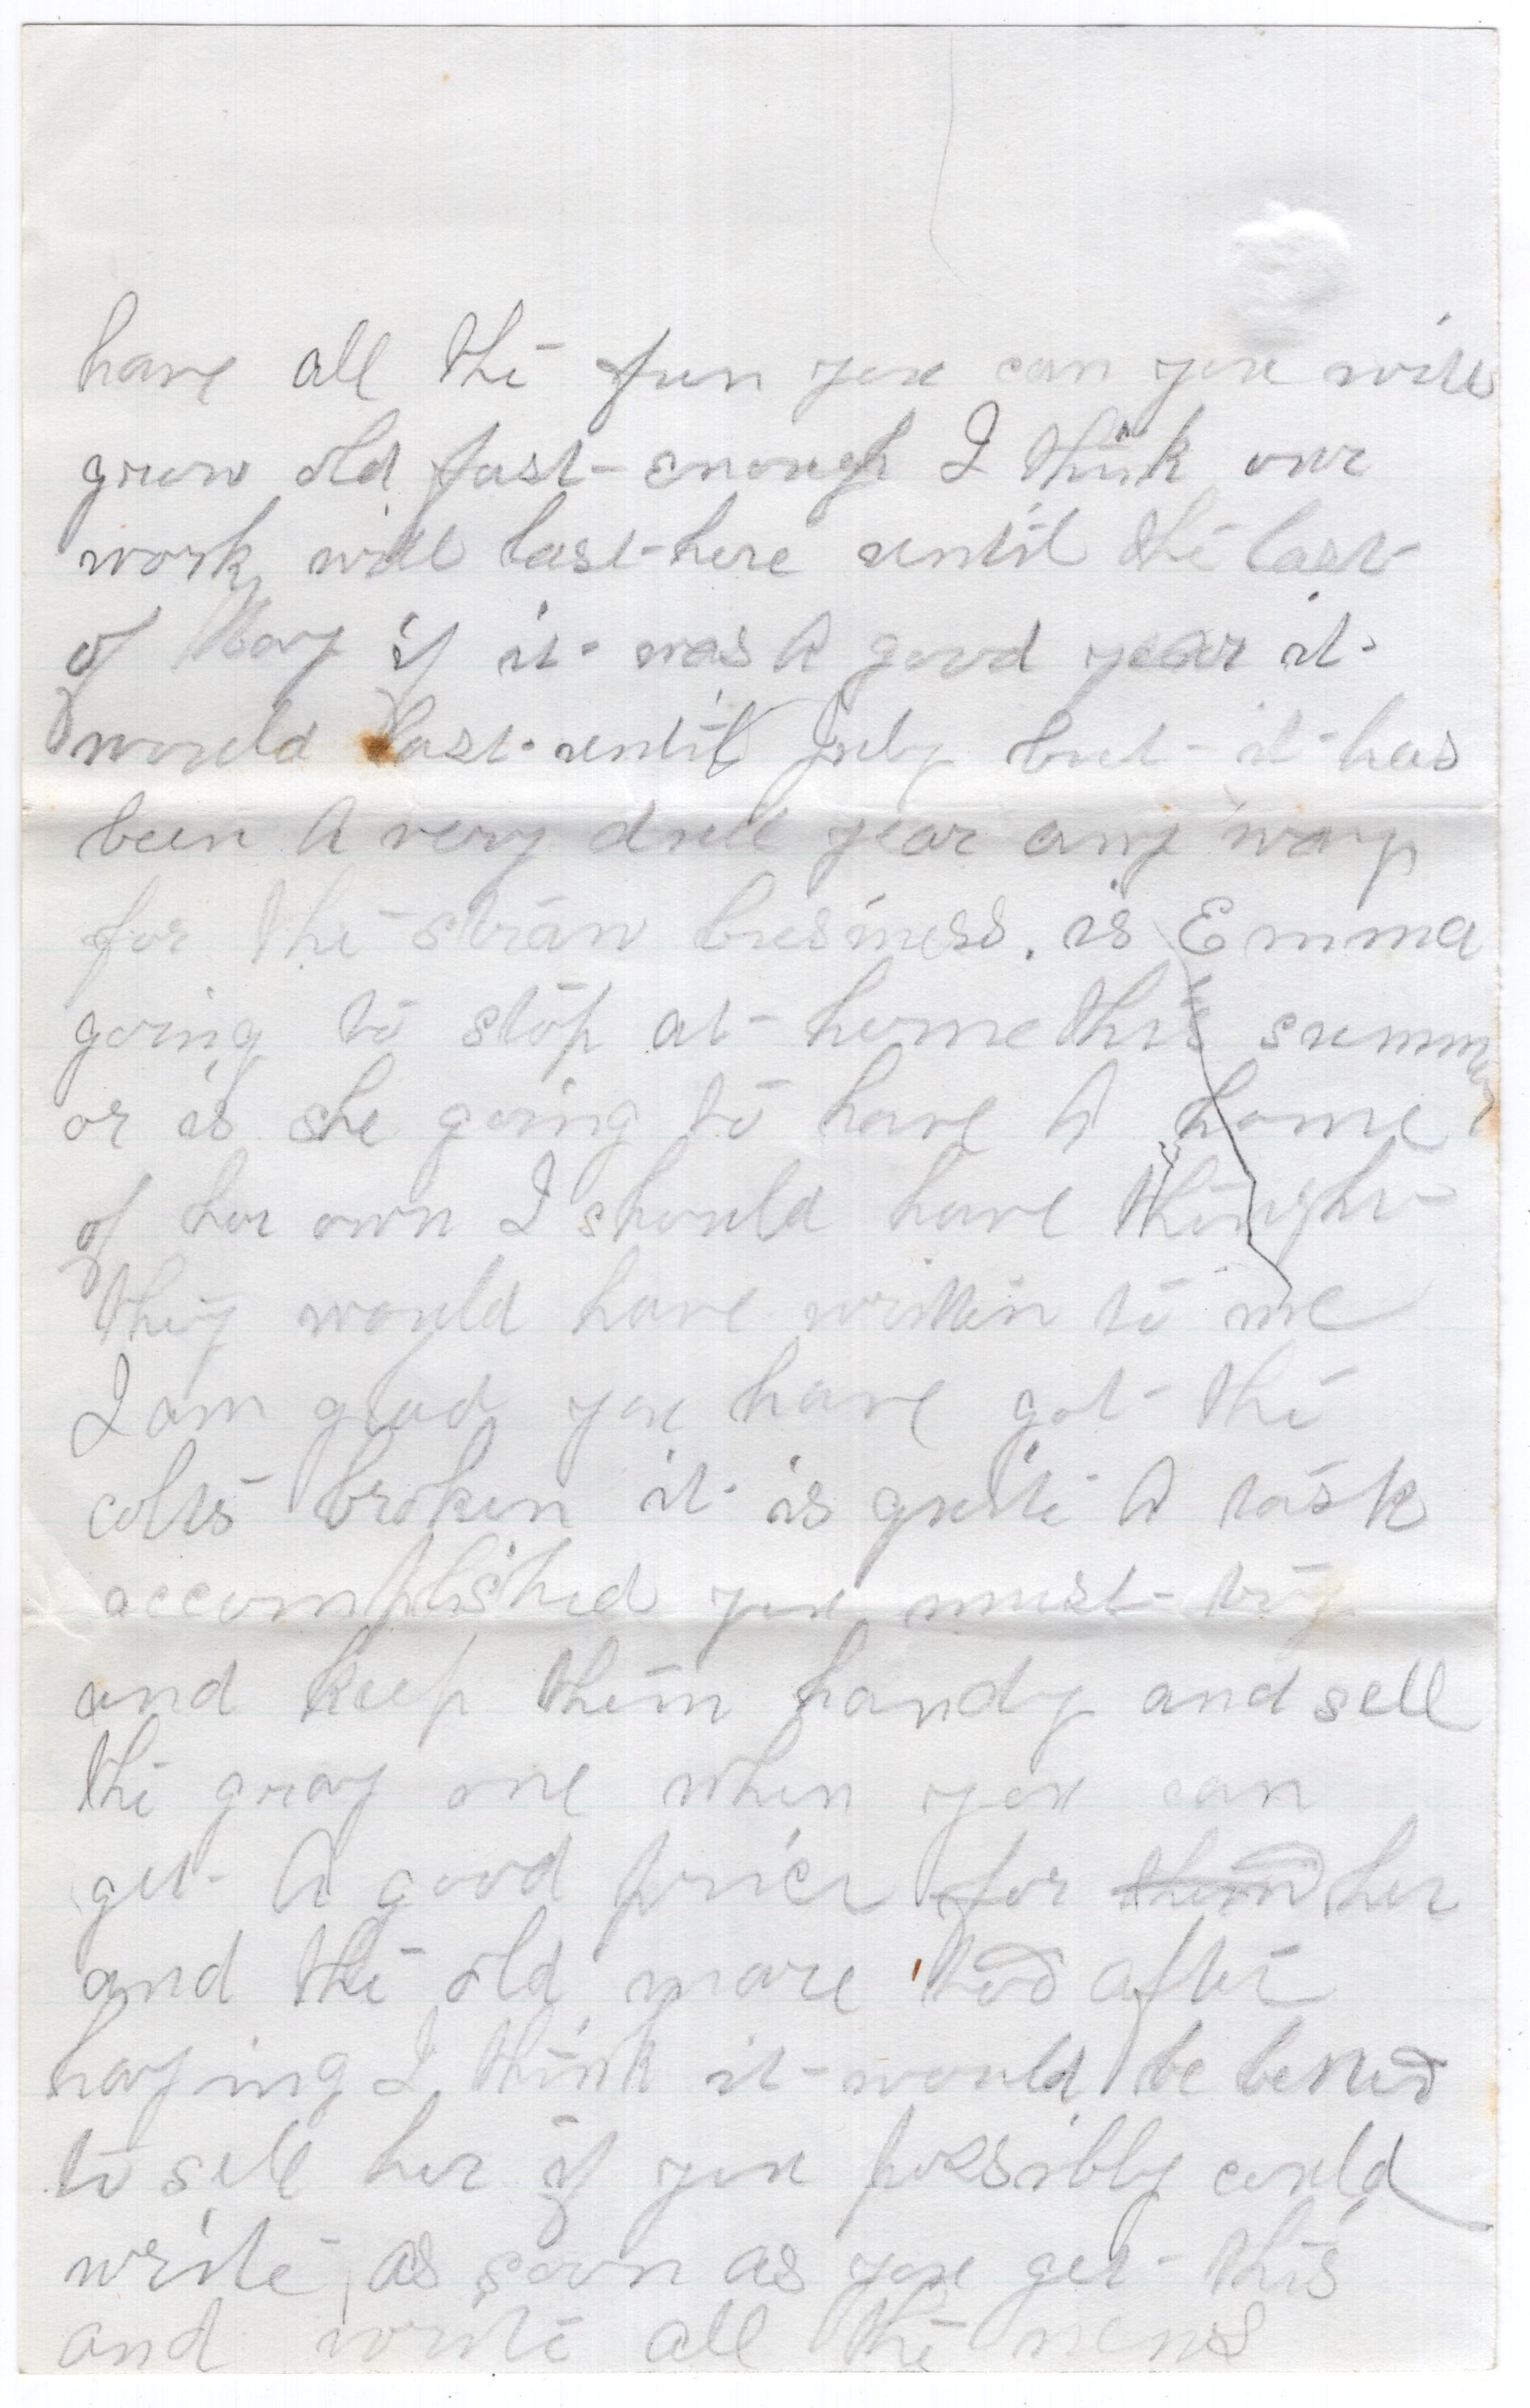 have all the fun you can you will
grow old fast enough I think our
work will last here until the last
of May if it was A good year it
would last until July but it has
been A very dull year any way
for the straw business. is Emma
going to stop at home this summer
or is she going to have A home
of her own I should have thought
they would have written to me
I am glad you have got the
colts broken it is quite A task
accomplished you must try
and keep them handy and sell
the gray one when you can
get A good price for them her
and the old mare too after
haying I think it would be better
to sell her if you possibly could
write as soon as you get this
and write all the news